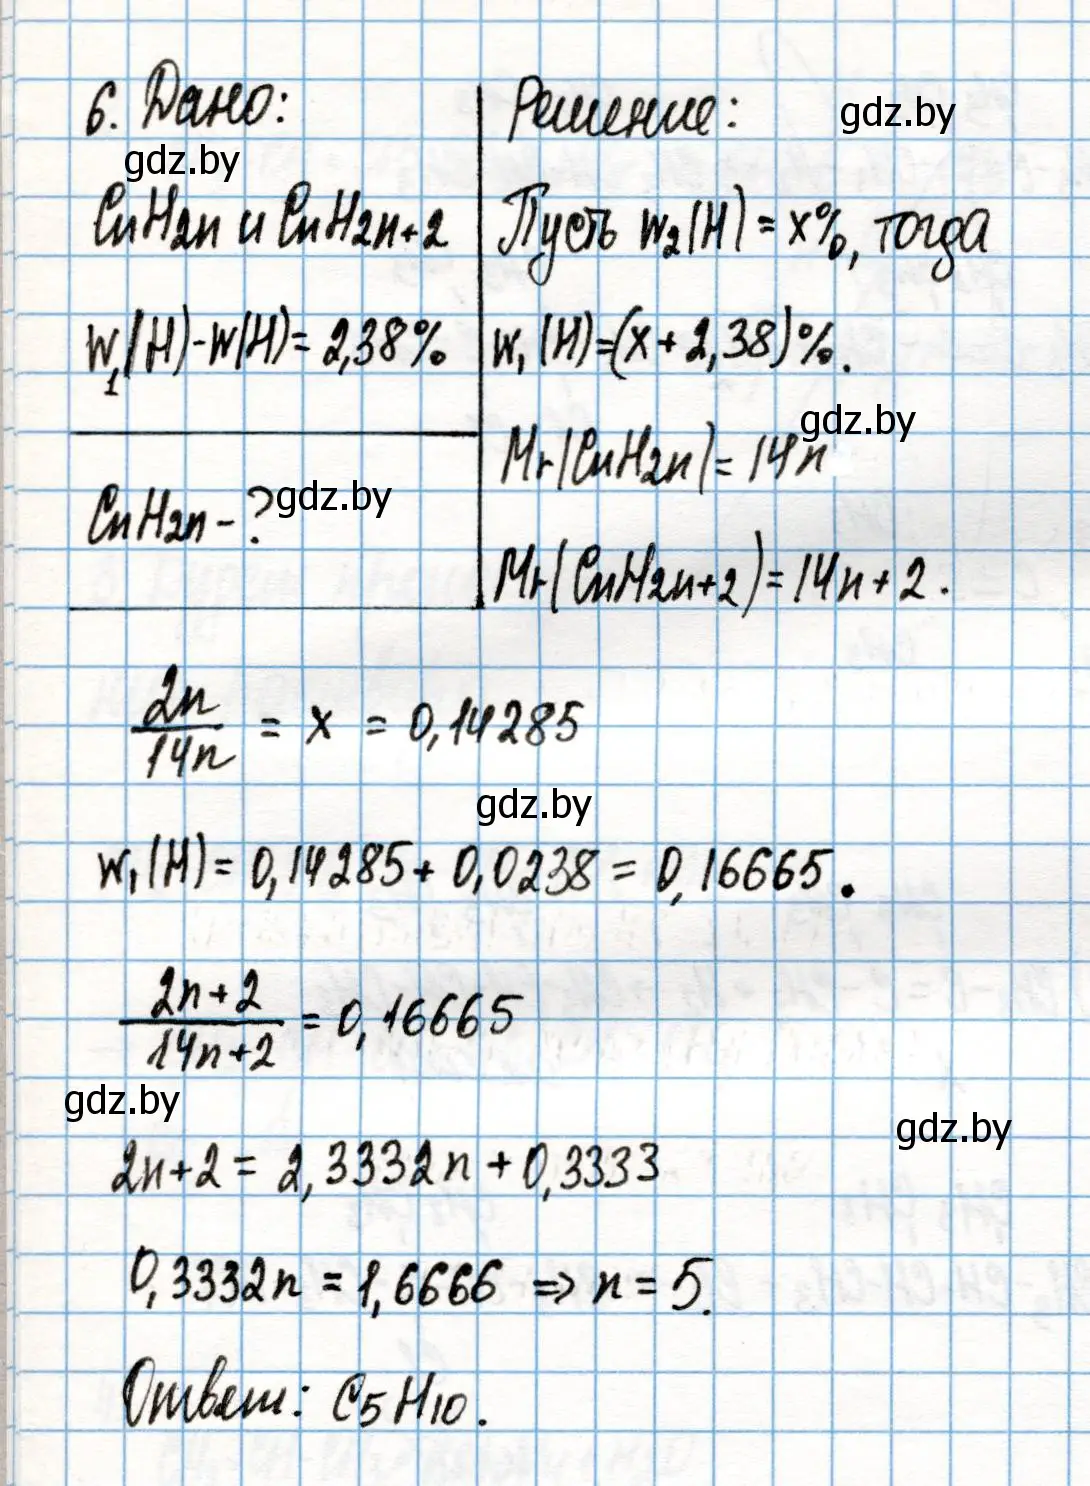 6. Дано:
gdz.by
CnH2n и CnH2n+2
W1(H)-W(H)= 2,38%
CnH2n - ?
gdz.by
Решение:
gdz.by
Пусть W2(H) = x%, тогда
W1(H)=(x+2,38)%.
gdz.by
Mr(CnH2n)=14n
Mr(CnH2n+2)=14n+2.
2n/14n = x = 0,14285
gdz.by
W1(H)= 0,14285+0,0238=0,16665.
2n+2/14n+2 = 0,16665
gdz.by
gdz.by
2n+2 = 2,3332n+0,3333
0,3332n = 1,6666 => n = 5.
Ответ: C5H10.